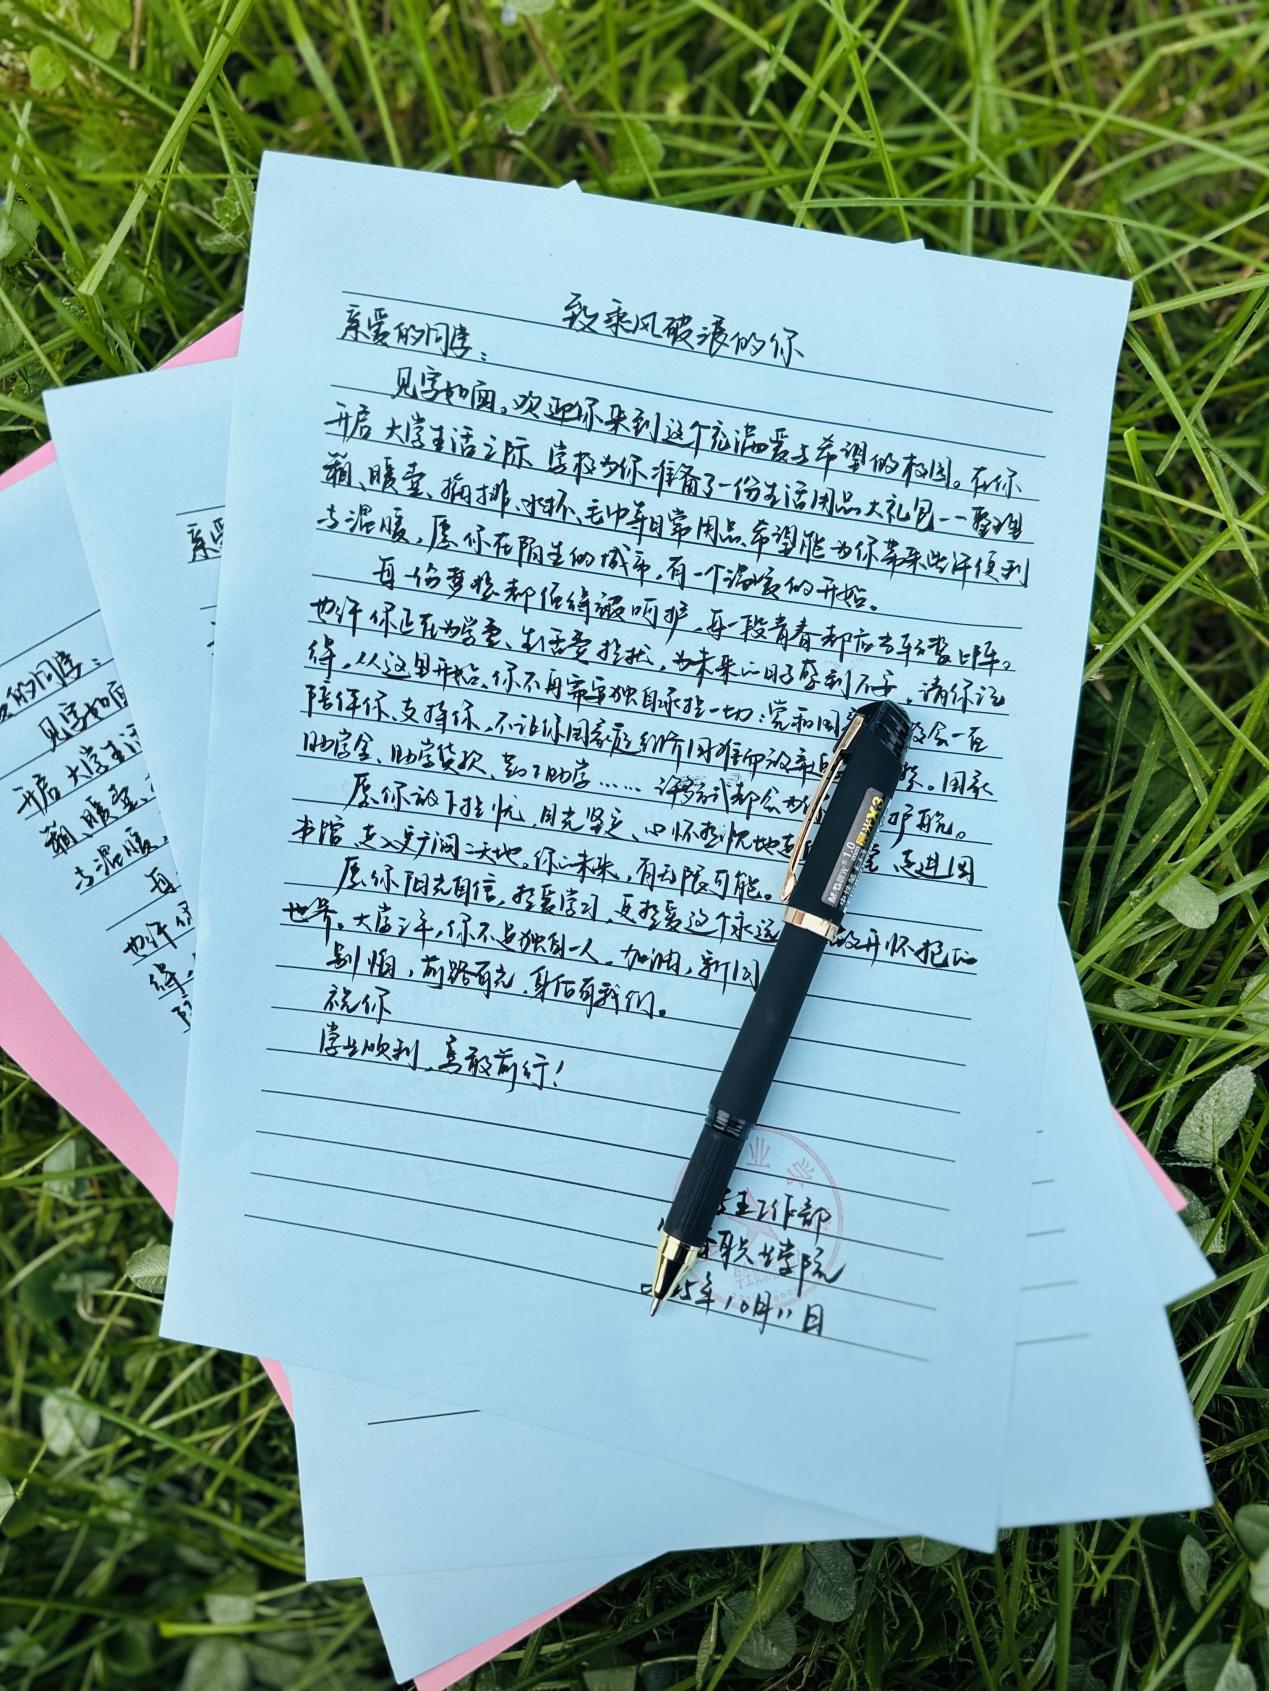 致乘风破浪的你
亲爱的同学:
见字如面。欢迎你来到这个充满爱与希望的校园。在你
开启大学生活之际 学校为你准备了一份生活用品大礼包——整理
箱、暖壶、插排、水杯、毛巾等日常用品,希望能为你带来些许便利
与温暖,愿你在陌生的城市,有一个温暖的开始。
每一份梦想都值得被呵护,每一段青春都应当轻装上阵。
也许你正在为学费、生活费担忧,为未来的日子感到不安,请你记
得,从这里开始,你不再需要独自承担一切:党和国 会一直
陪伴你、支持你,不让你因家庭经济困难而放弃 。国家
助学金、助学贷款、勤工助学…… 许多方式都会为你 护航。
愿你放下担忧,目光坚定、心怀热忱地走 ,走进图
书馆,走入更广阔的天地。你的未来,有无限可能。
愿你阳光自信,热爱学习,更热爱这个永远 敞开怀抱的
世界。大学三年,你不是独自一人。加油,新同
别怕,前路有光,身后有我们。
祝你
学业顺利,勇敢前行!
业 学
生工作部
职业学院
25年10月11日
M&G 1.0
亲
爱的同学:
见字如面
开启大学生活
箱、暖壶、
与温暖,
每
也许你
得,
陪